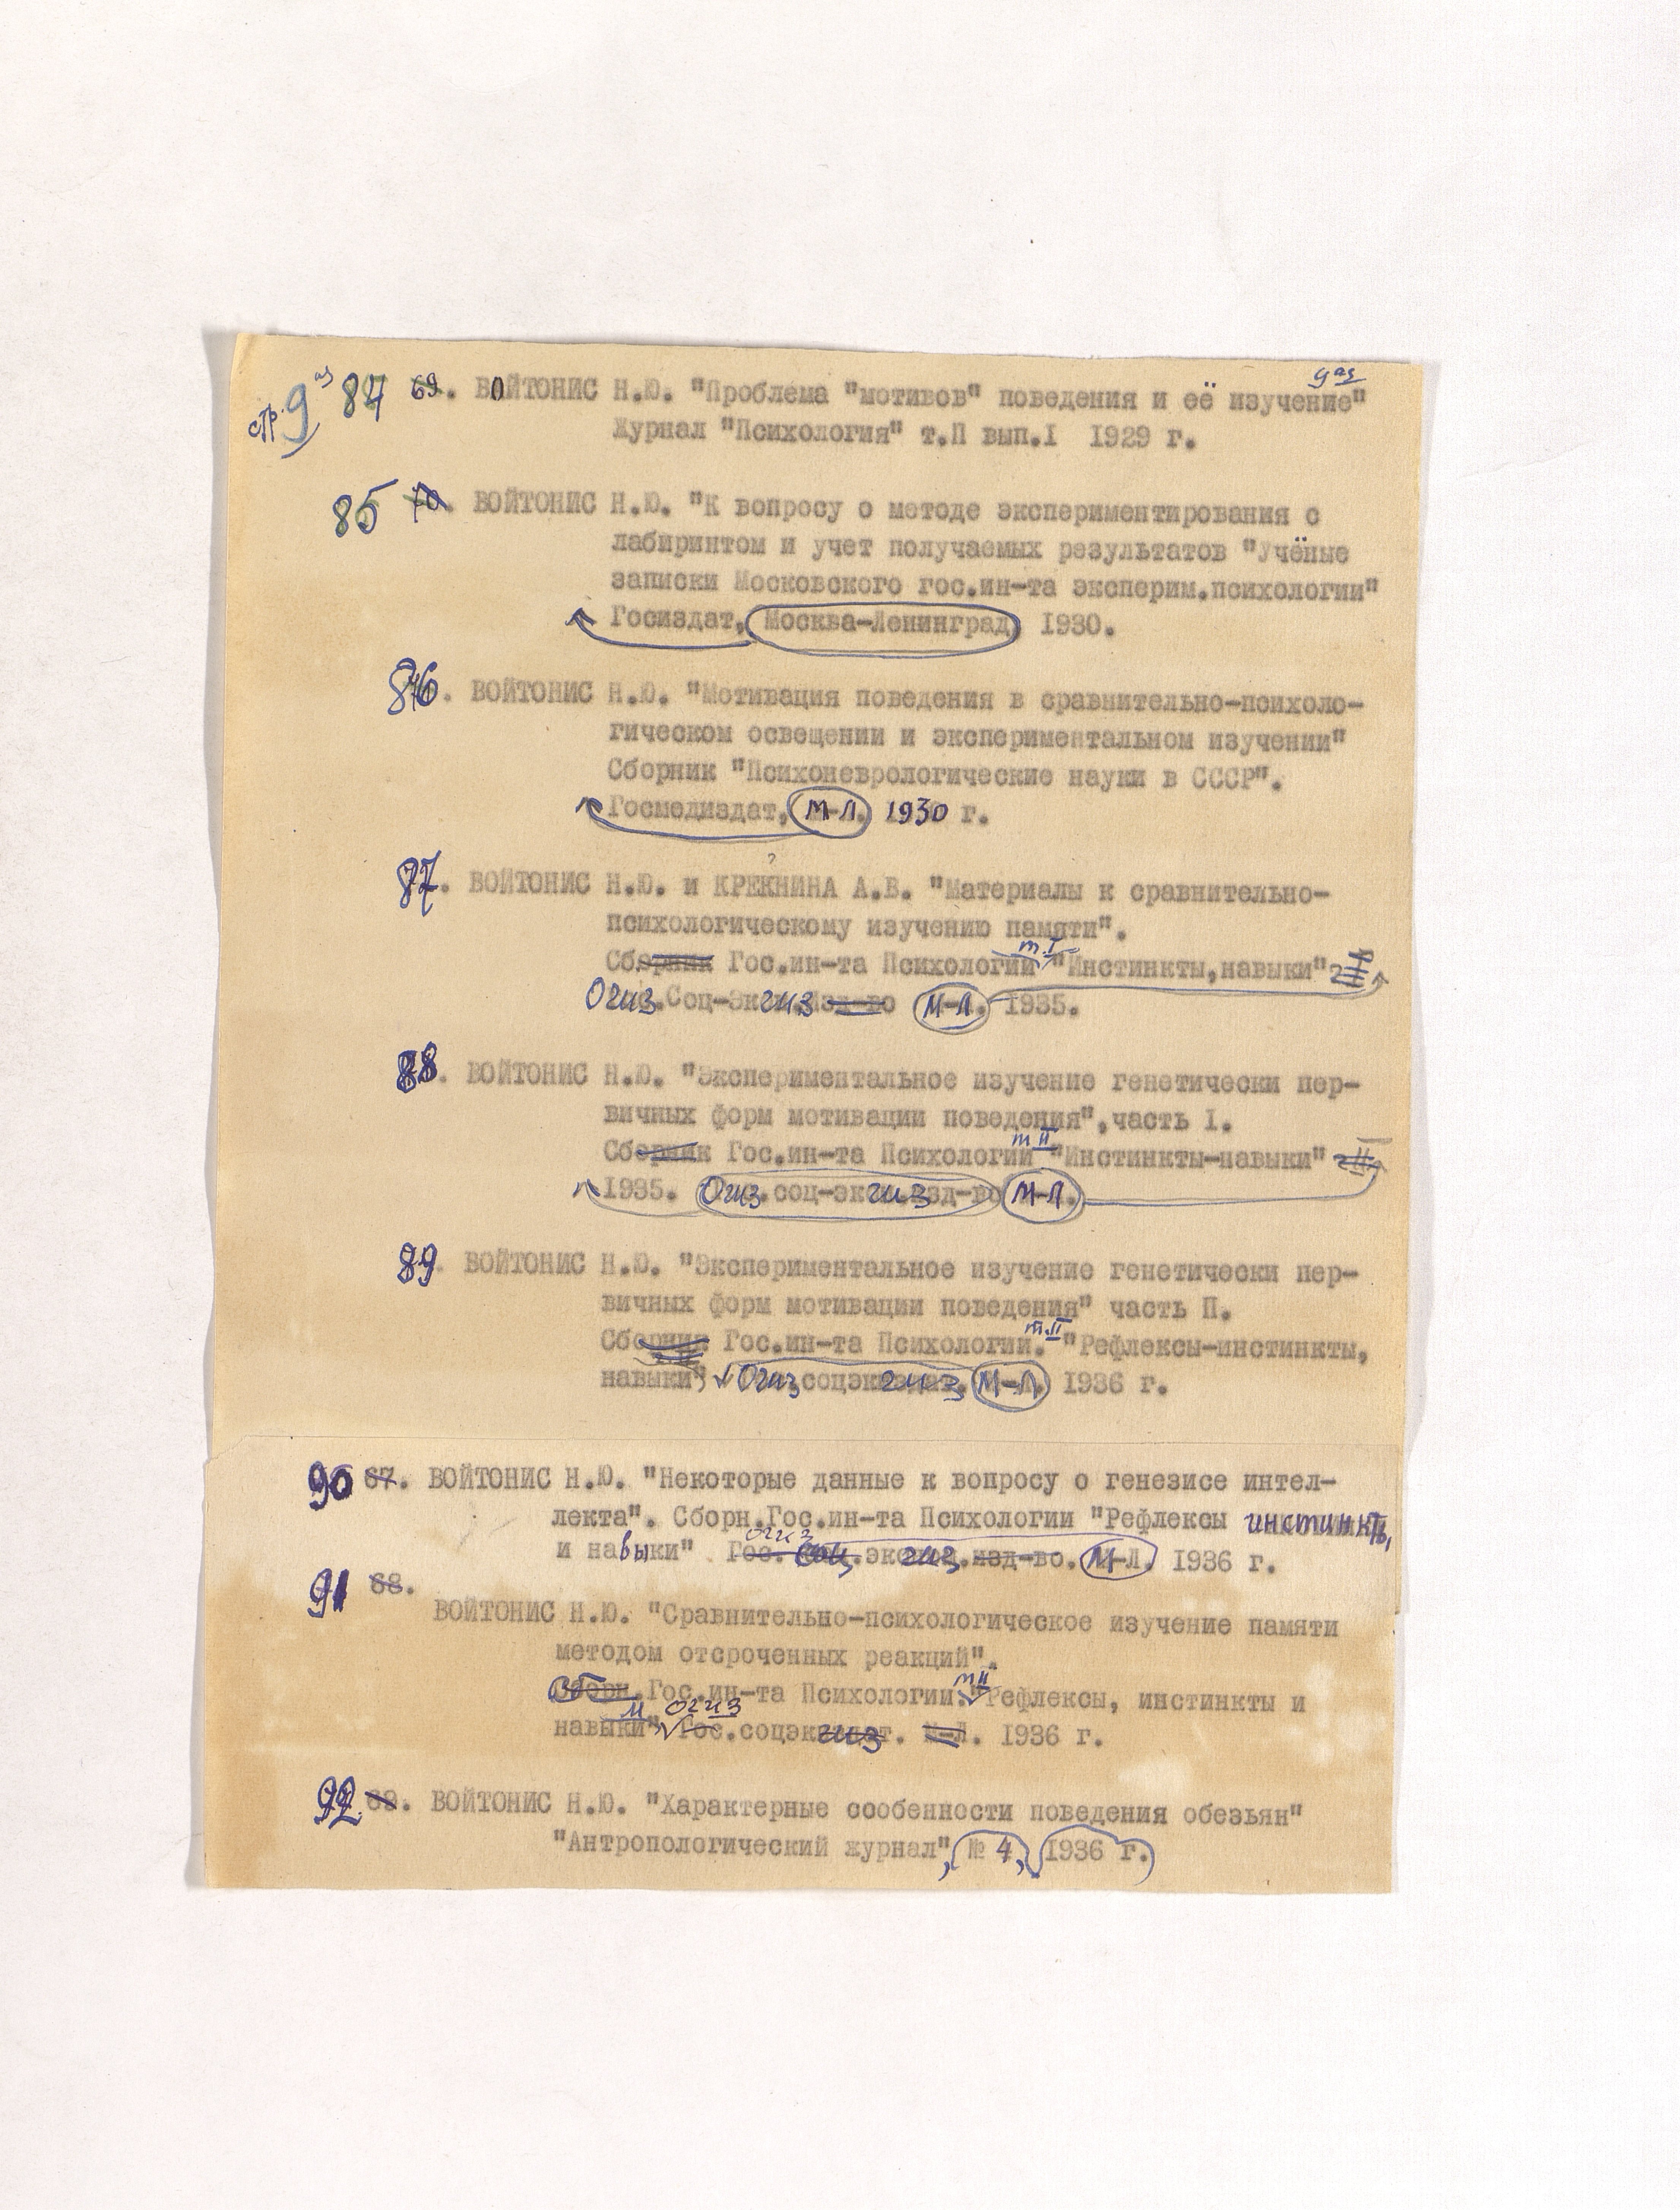 стр. 9 аз 84 69. ВОЙТОНИС Н.Ю. "Проблема "мотивов" поведения и её изучение" 9 аз
Журнал "Психология" т.П вып.I 1929 г.
85 70. ВОЙТОНИС Н.Ю. "К вопросу о методе экспериментирования с
лабиринтом и учет получаемых результатов "Учёные
записки Московского гос.ин-та эксперим.психологии"
Госиздат, Москва-Ленинград 1930.
86. ВОЙТОНИС Н.Ю. "Мотивация поведения в сравнительно-психоло-
гическом освещении и экспериментальном изучении"
Сборник "Психоневрологические науки в СССР".
Госмедиздат, М-Л. 1930 г.
87. ВОЙТОНИС Н.Ю. и КРЕКНИНА А.В. "Материалы к сравнительно-
психологическому изучению памяти".
т. I
Сборник Гос.ин-та Психологии "Инстинкты,навыки"
Огиз.Соц-Экгиз Изд-во М-Л. 1935.
88. ВОЙТОНИС Н.Ю. "Экспериментальное изучение генетически пер-
вичных форм мотивации поведения",часть I.
т II
Сборник Гос.ин-та Психологии "Инстинкты-навыки" II
1935. Огиз.соц-экгиз изд-во М-Л.
89. ВОЙТОНИС Н.Ю. "Экспериментальное изучение генетически пер-
вичных форм мотивации поведения" часть П.
т.II
Сборник Гос.ин-та Психологии. "Рефлексы-инстинкты,
навыки", Огиз соцэкгиз. М-Л. 1936 г.
90 67. ВОЙТОНИС Н.Ю. "Некоторые данные к вопросу о генезисе интел-
лекта". Сборн.Гос.ин-та Психологии "Рефлексы инстинкты,
огиз
и навыки" Гос. Соц.экгиз.изд-во. М-Л. 1936 г.
91 68.
ВОЙТОНИС Н.Ю. "Сравнительно-психологическое изучение памяти
методом отсроченных реакций".
т II
Сборн.Гос.ин-та Психологии."Рефлексы, инстинкты и
М Огиз
навыки", Гос.соцэкгиз. М-Л. 1936 г.
92 69. ВОЙТОНИС Н.Ю. "Характерные особенности поведения обезьян"
"Антропологический журнал", № 4, 1936 г.